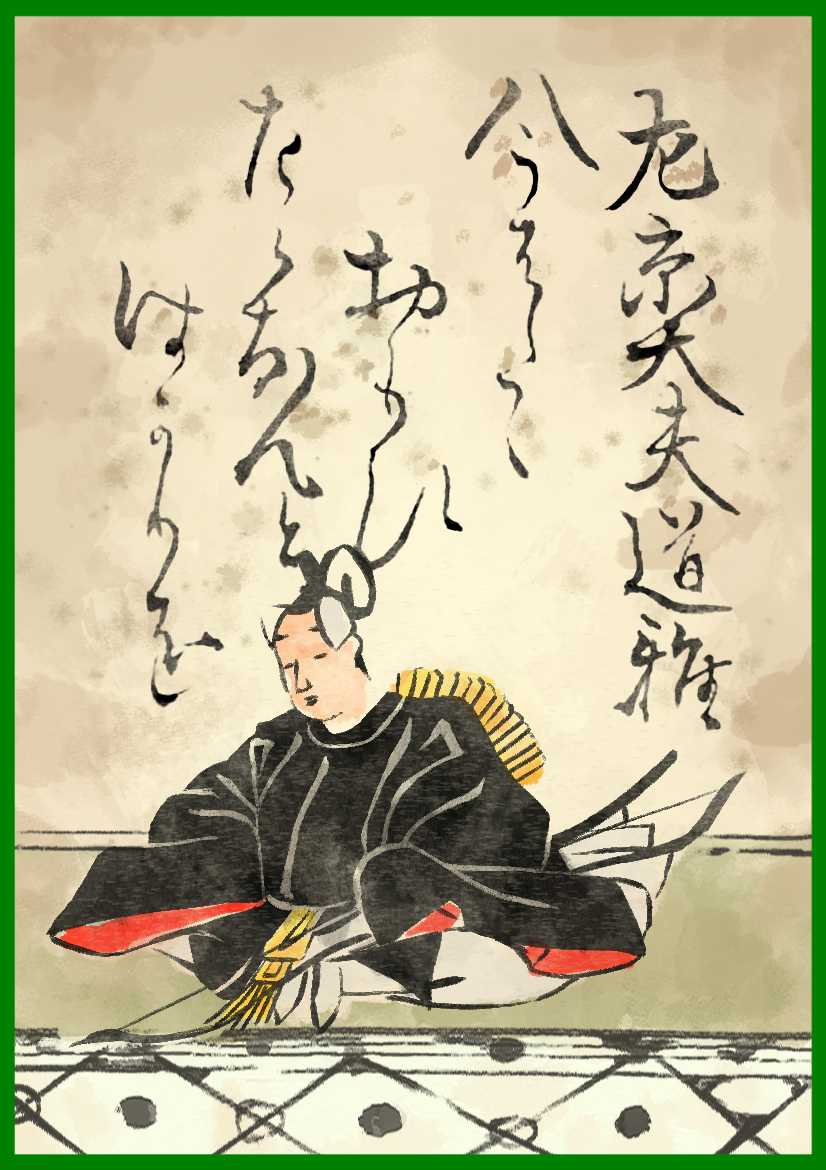 左京大夫道雅
今はたゝ
おもひ
たえなんと
はかりを